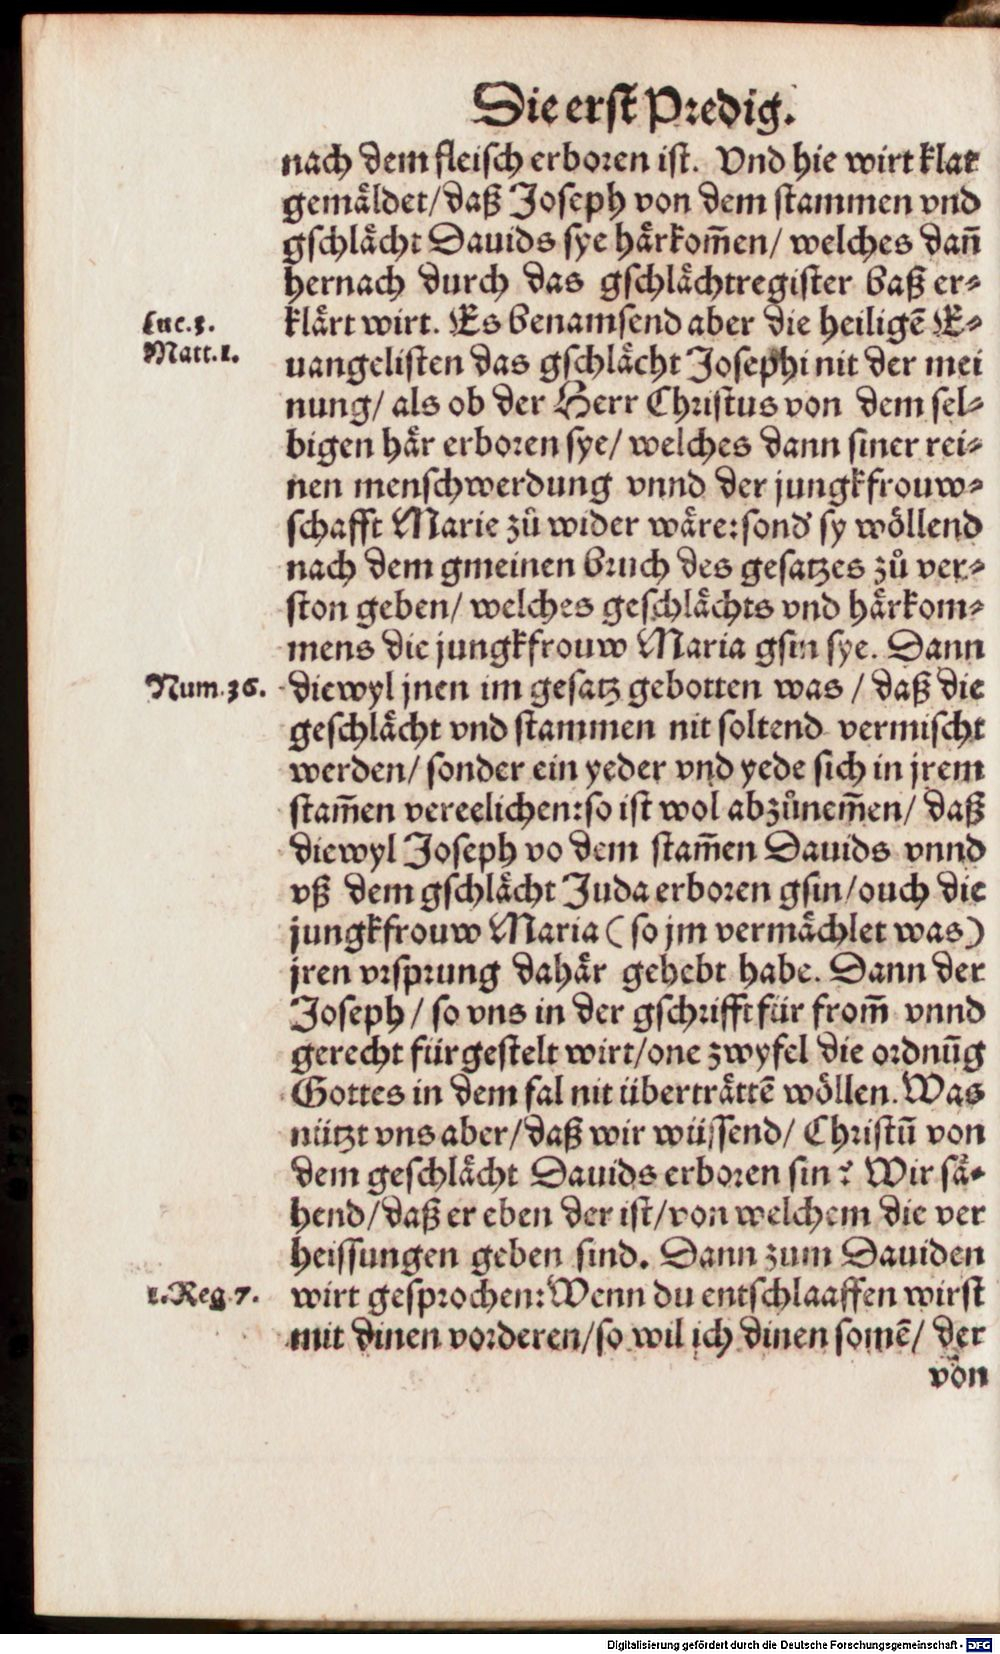 Die erst Predig.
nach dem fleisch erboren ist. Vnd hie wirt klar
gemäldet/ daß Joseph von dem stammen vnd
gschlächt Dauids sye härkom̄en/ welches dan̄
hernach durch das gschlächtregister baß er⸗
Luc. 3.
klärt wirt. Es benamsend aber die heiligē E⸗
Matt. 1.
uangelisten das gschlächt Josephi nit der mei
nung/ als ob der Herr Christus von dem sel⸗
bigen här erboren sye/ welches dann siner rei⸗
nen menschwerdung vnnd der jungkfrouw⸗
schafft Marie zů wider wäre: sond' sy wöllend
nach dem gmeinen bruch des gesatzes zů ver⸗
ston geben/ welches geschlächts vnd härkom⸗
mens die jungkfrouw Maria gsin sye. Dann
Num. 36.
diewyl jnen im gesatz gebotten was / daß die
geschlächt vnd stammen nit soltend vermischt
werden/ sonder ein yeder vnd yede sich in jrem
stam̄en vereelichen: so ist wol abzůnem̄en/ daß
diewyl Joseph vo dem stam̄en Dauids vnnd
vß dem gschlächt Juda erboren gsin/ ouch die
jungkfrouw Maria ( so jm vermächlet was)
jren vrsprung dahär gehebt habe. Dann der
Joseph / so vns in der gschrifft für from̄ vnnd
gerecht fürgestelt wirt/ one zwyfel die ordnūg
Gottes in dem fal nit überträttē wöllen. Was
nützt vns aber/ daß wir wüssend/ Christū von
dem geschlächt Dauids erboren sin? Wir sä⸗
hend/ daß er eben der ist/ von welchem die ver
heissungen geben sind. Dann zum Dauiden
1. Reg. 7.
wirt gesprochen: Wenn du entschlaaffen wirst
mit dinen vorderen/ so wil ich dinen somē/ der
von
Digitalisierung gefördert durch die Deutsche Forschungsgemeinschaft - DFG